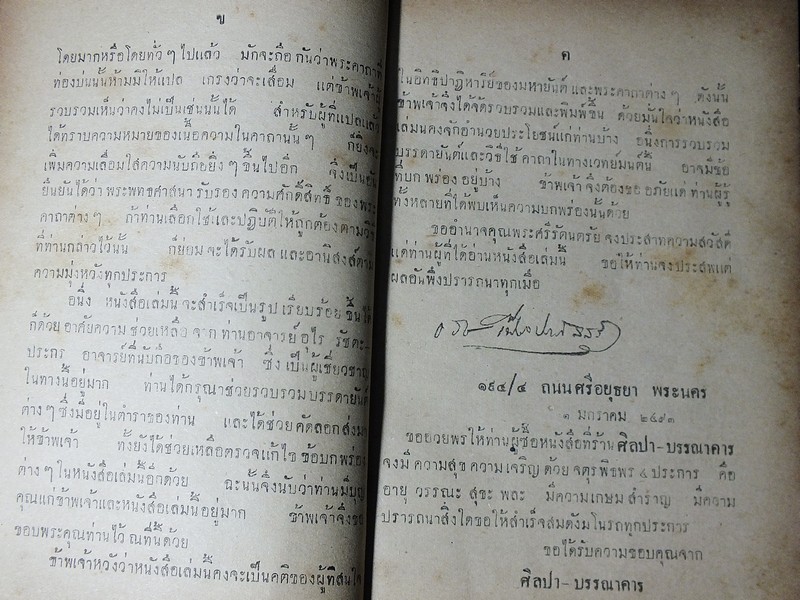 ข
โดยมากหรือโดยทั่ว ๆ ไปแล้ว มักจะถือ กันว่าพระคาถาที่
ท่องบ่นนั้นห้ามมิให้แปล เกรงว่าจะเสื่อม แต่ข้าพเจ้าผู้
รวบรวมเห็นว่าคงไม่เป็นเช่นนั้นได้ สำหรับผู้ที่แปลแล้ว
ได้ทราบความหมายของเนื้อความในคาถานั้น ๆ ก็ยิ่งจะ
เพิ่มความเลื่อมใสความนับถือยิ่ง ๆ ขึ้นไปอีก จึงเป็นอัน
ยืนยันได้ว่า พระพุทธศาสนา รับรอง ความศักดิ์สิทธิ์ ของพระ
คาถาต่าง ๆ ถ้าท่านเลือกใช้และปฏิบัติให้ถูกต้องตามวิธี
ที่ท่านกล่าวไว้นั้น ก็ย่อมจะได้รับผล และอานิสงส์ตาม
ความมุ่งหวังทุกประการ
อนึ่ง หนังสือเล่มนี้ จะสำเร็จเป็นรูป เรียบร้อย ขึ้นได้
ก็ด้วย อาศัยความ ช่วยเหลือ จาก ท่านอาจารย์ อุไร รัชตะ-
ประกร อาจารย์ที่นับถือของข้าพเจ้า ซึ่ง เป็นผู้เชี่ยวชาญ
ในทางนี้อยู่มาก ท่านได้กรุณาช่วยรวบรวมบรรดายันต์
ต่าง ๆ ซึ่งมีอยู่ในตำราของท่าน และได้ช่วยคัดลอกส่งมา
ให้ข้าพเจ้า ทั้งยังได้ช่วยเหลือตรวจแก้ไข ข้อบกพร่อง
ต่าง ๆ ในหนังสือเล่มนี้อีกด้วย ฉะนั้นจึงนับว่าท่านมีบุญ
คุณแก่ข้าพเจ้าและหนังสือเล่มนี้อยู่มาก ข้าพเจ้าจึงขอ
ขอบพระคุณท่านไว้ ณ ที่นี้ด้วย
ข้าพเจ้าหวังว่าหนังสือเล่มนี้คงจะเป็นคติของผู้ที่สนใจ
ค
ในอิทธิปาฏิหาริย์ของมหายันต์ และพระคาถาต่าง ๆ ดังนั้น
ข้าพเจ้าจึงได้จัดรวบรวมและพิมพ์ขึ้น ด้วยมั่นใจว่าหนังสือ
เล่มนี้คงจักอำนวยประโยชน์แก่ท่านบ้าง อนึ่งการรวบรวม
บรรดายันต์และวิธีใช้ คาถาในทางเวทย์มนต์นี้ อาจมีข้อ
ที่บกพร่อง อยู่บ้าง ข้าพเจ้า จึงต้องขอ อภัยแด่ ท่านผู้รู้
ทั้งหลายที่ได้พบเห็นความบกพร่องนั้นด้วย
ขออำนาจคุณพระศรีรัตนตรัย จงประสาทความสวัสดี
แด่ท่านผู้ที่ได้อ่านหนังสือเล่มนี้ ขอให้ท่านจงประสพแต่
ผลอันพึงปรารถนาทุกเมื่อ
๑๙๔/๔ ถนนศรีอยุธยา พระนคร
๑ มกราคม ๒๔๙๓
ขออวยพรให้ท่านผู้ซื้อหนังสือที่ร้าน ศิลปา-บรรณาคาร
จงมี ความสุข ความเจริญ ด้วย จตุรพิธพร ๔ ประการ คือ
อายุ วรรณะ สุขะ พละ มีความเกษม สำราญ มีความ
ปรารถนาสิ่งใดขอให้สำเร็จสมดังมโนรถทุกประการ
ขอได้รับความขอบคุณจาก
ศิลปา-บรรณาคาร